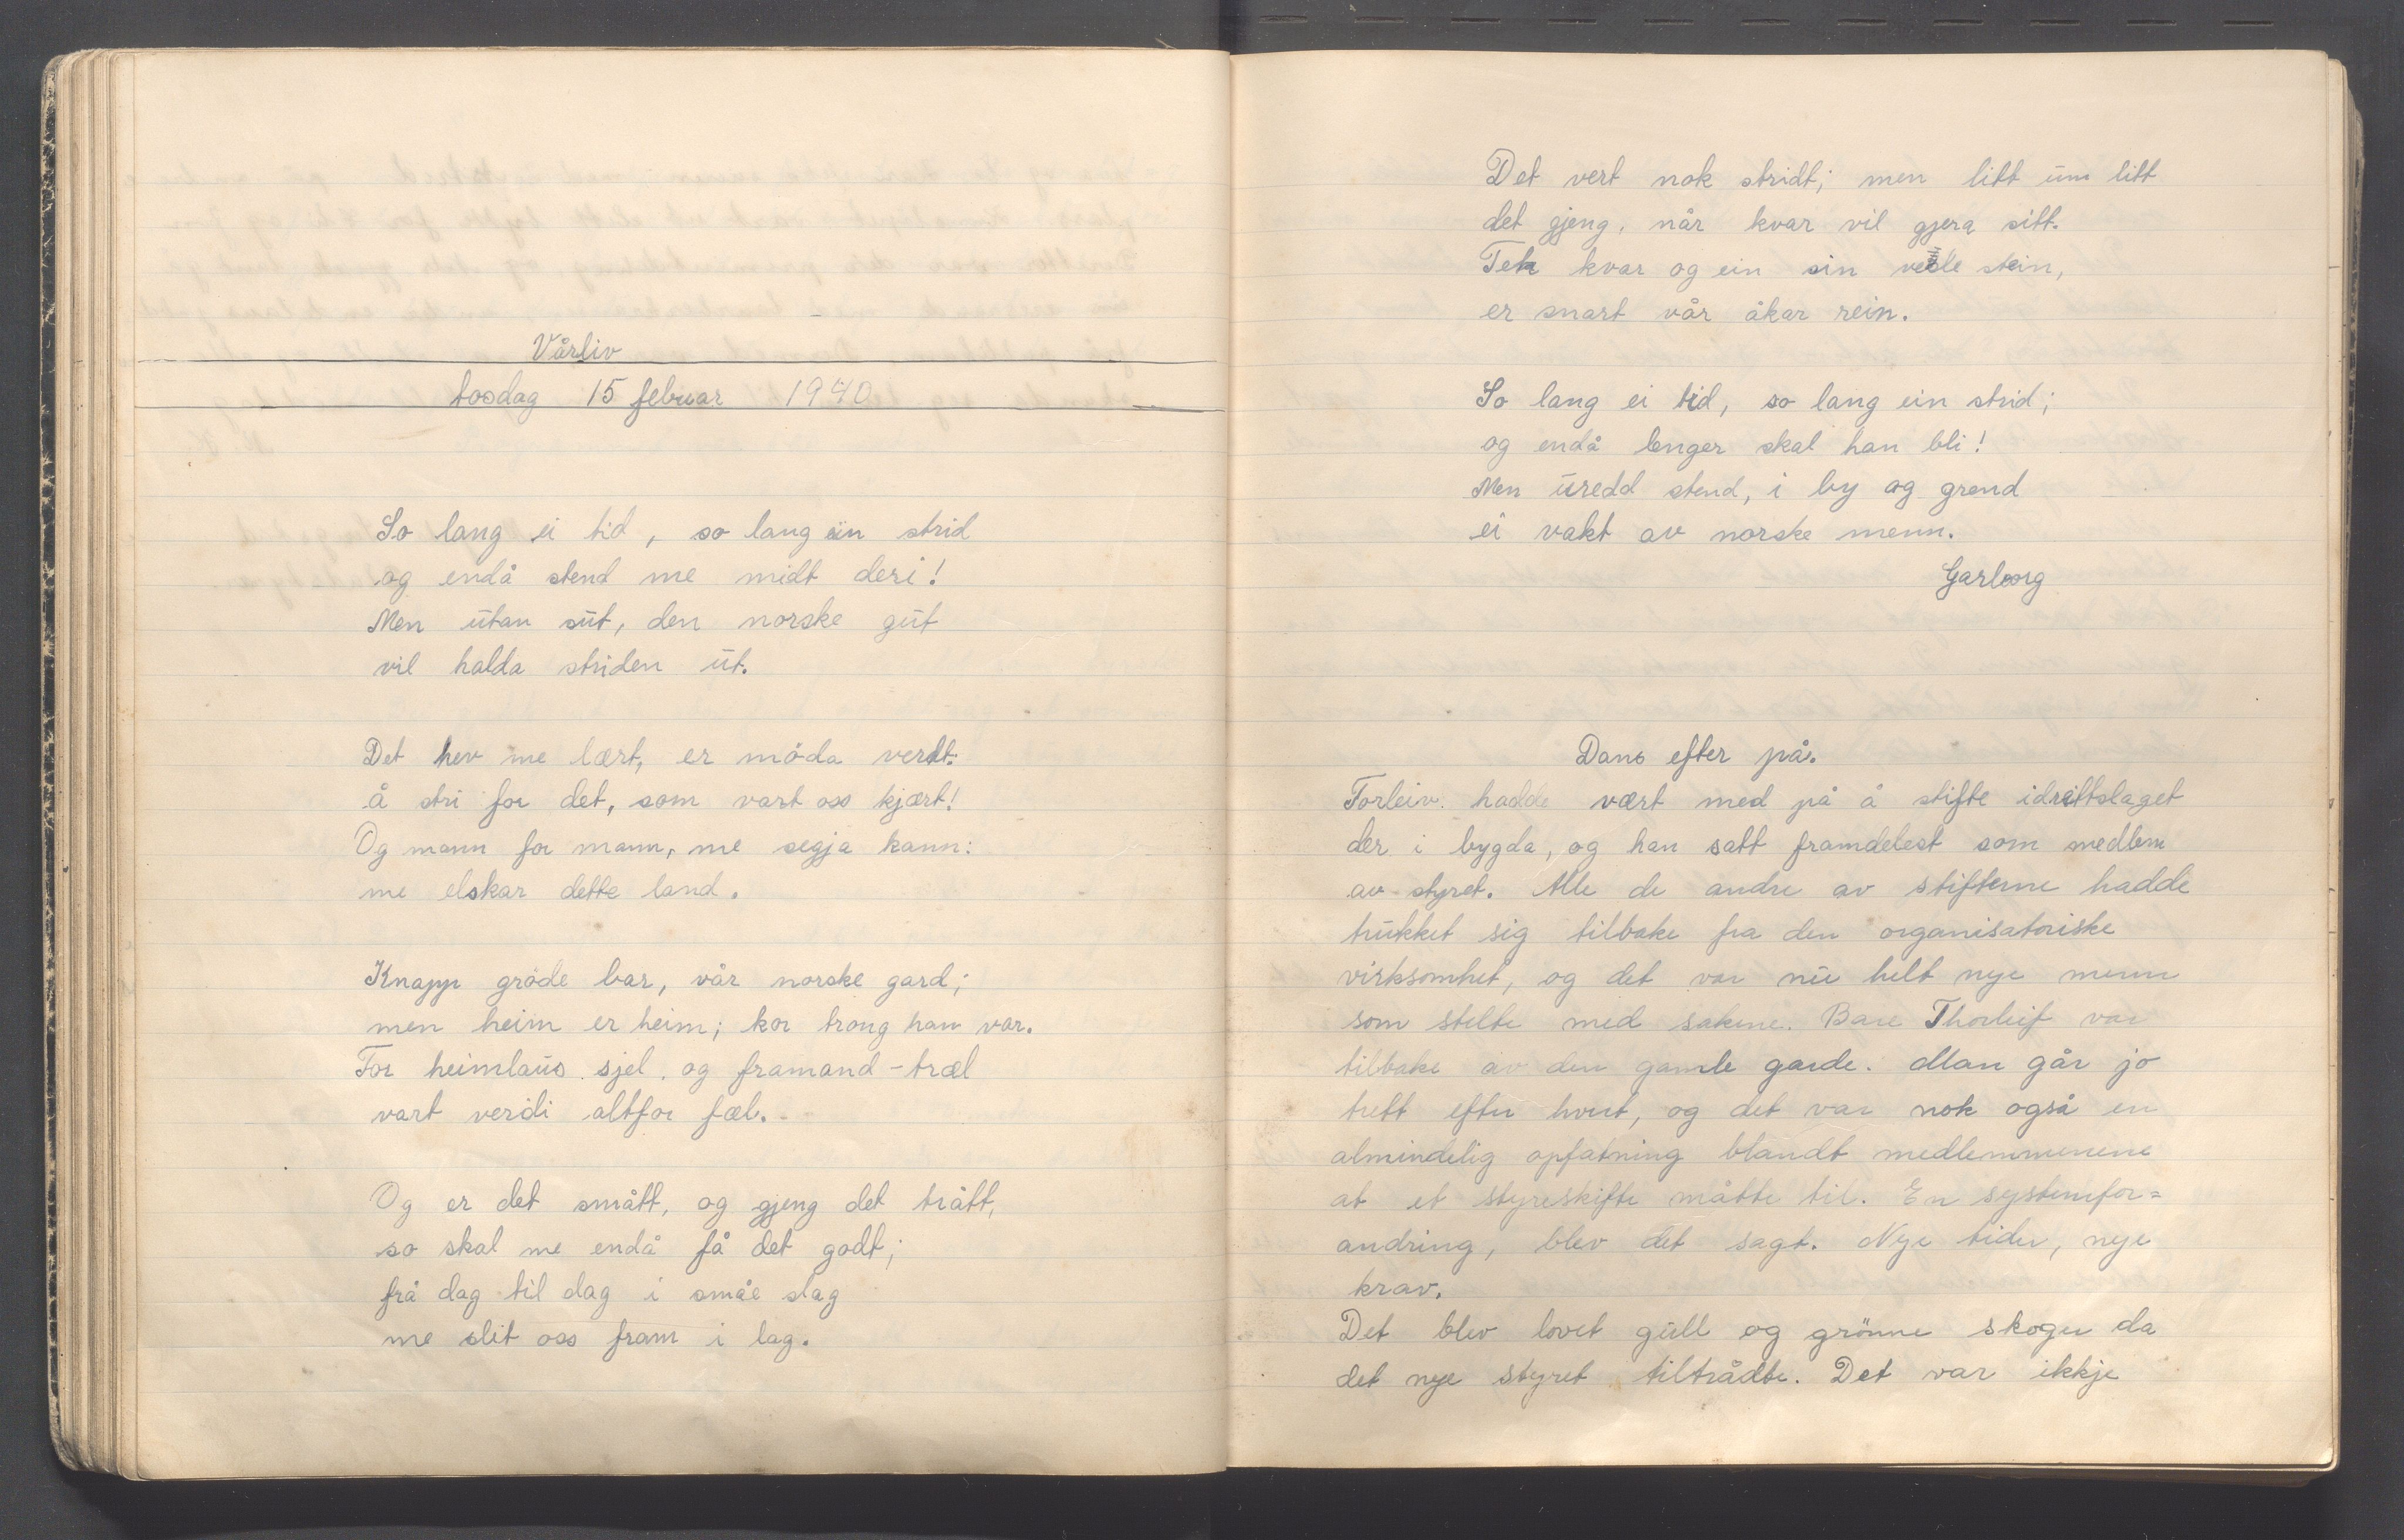 Vårliv
tosdag 15 februar 1940
So lang ei tid, so lang ein strid
og endå stend me midt deri!
Men utan sut, den norske gut
vil halda striden ut.
Det hev me lært, er møda verdt:
å stri for det, som vart oss kjært!
Og mann for mann, me segja kann:
me elskar dette land.
Knapp grøde bar, vår norske gard;
men heim er heim; kor trong han var.
For heimlaus sjel, og framand-træl
vart verdi altfor fæl.
Og er det smått, og gjeng det trått,
so skal me endå få det godt;
frå dag til dag i småe slag
me slit oss fram i lag.
Det vert nok stridt; men litt um litt
det gjeng, når kvar vil gjera sitt.
Tek kvar og ein sin vesle stein,
er snart vår åkar rein.
So lang ei tid, so lang ein strid;
og endå lenger skal han bli!
Men uredd stend, i by og grend
ei vakt av norske menn.
Garborg
Dans efter på.
Torleiv hadde vært med på å stifte idrettslaget
der i bygda, og han satt framdelest som medlem
av styret. Alle de andre av stifterne hadde
trukket sig tilbake fra den organisatoriske
virksomhet, og det var nu helt nye menn
som stelte med sakene. Bare Thorleif var
tilbake av den gamle garde. Man går jo
trett efter hvert, og det var nok også en
almindelig opfatning blandt medlemmenene
at et styreskifte måtte til. En systemfor=
andring, blev det sagt. Nye tider, nye
krav.
Det blev lovet gull og grønne skoger da
det nye styret tiltrådte. Det var ikkje